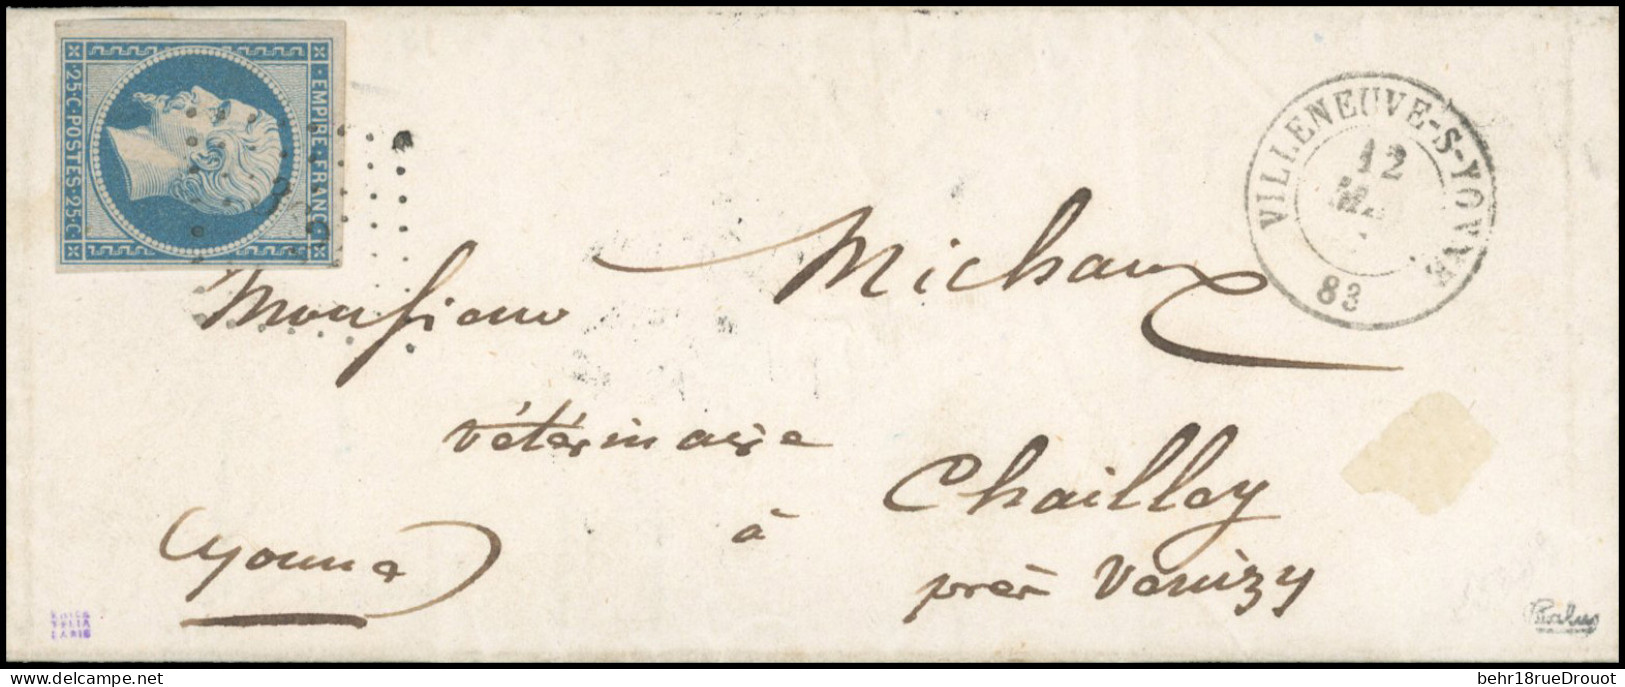 EMPIRE · FRANC ·
25 · C · POSTES · 25 · C ·
VILLENEUVE-S-YONNE
12
83
Monsieur Michaux
vétérinaire
à Chailley
près Venizy
(Yonne)
behr18rueDrouot